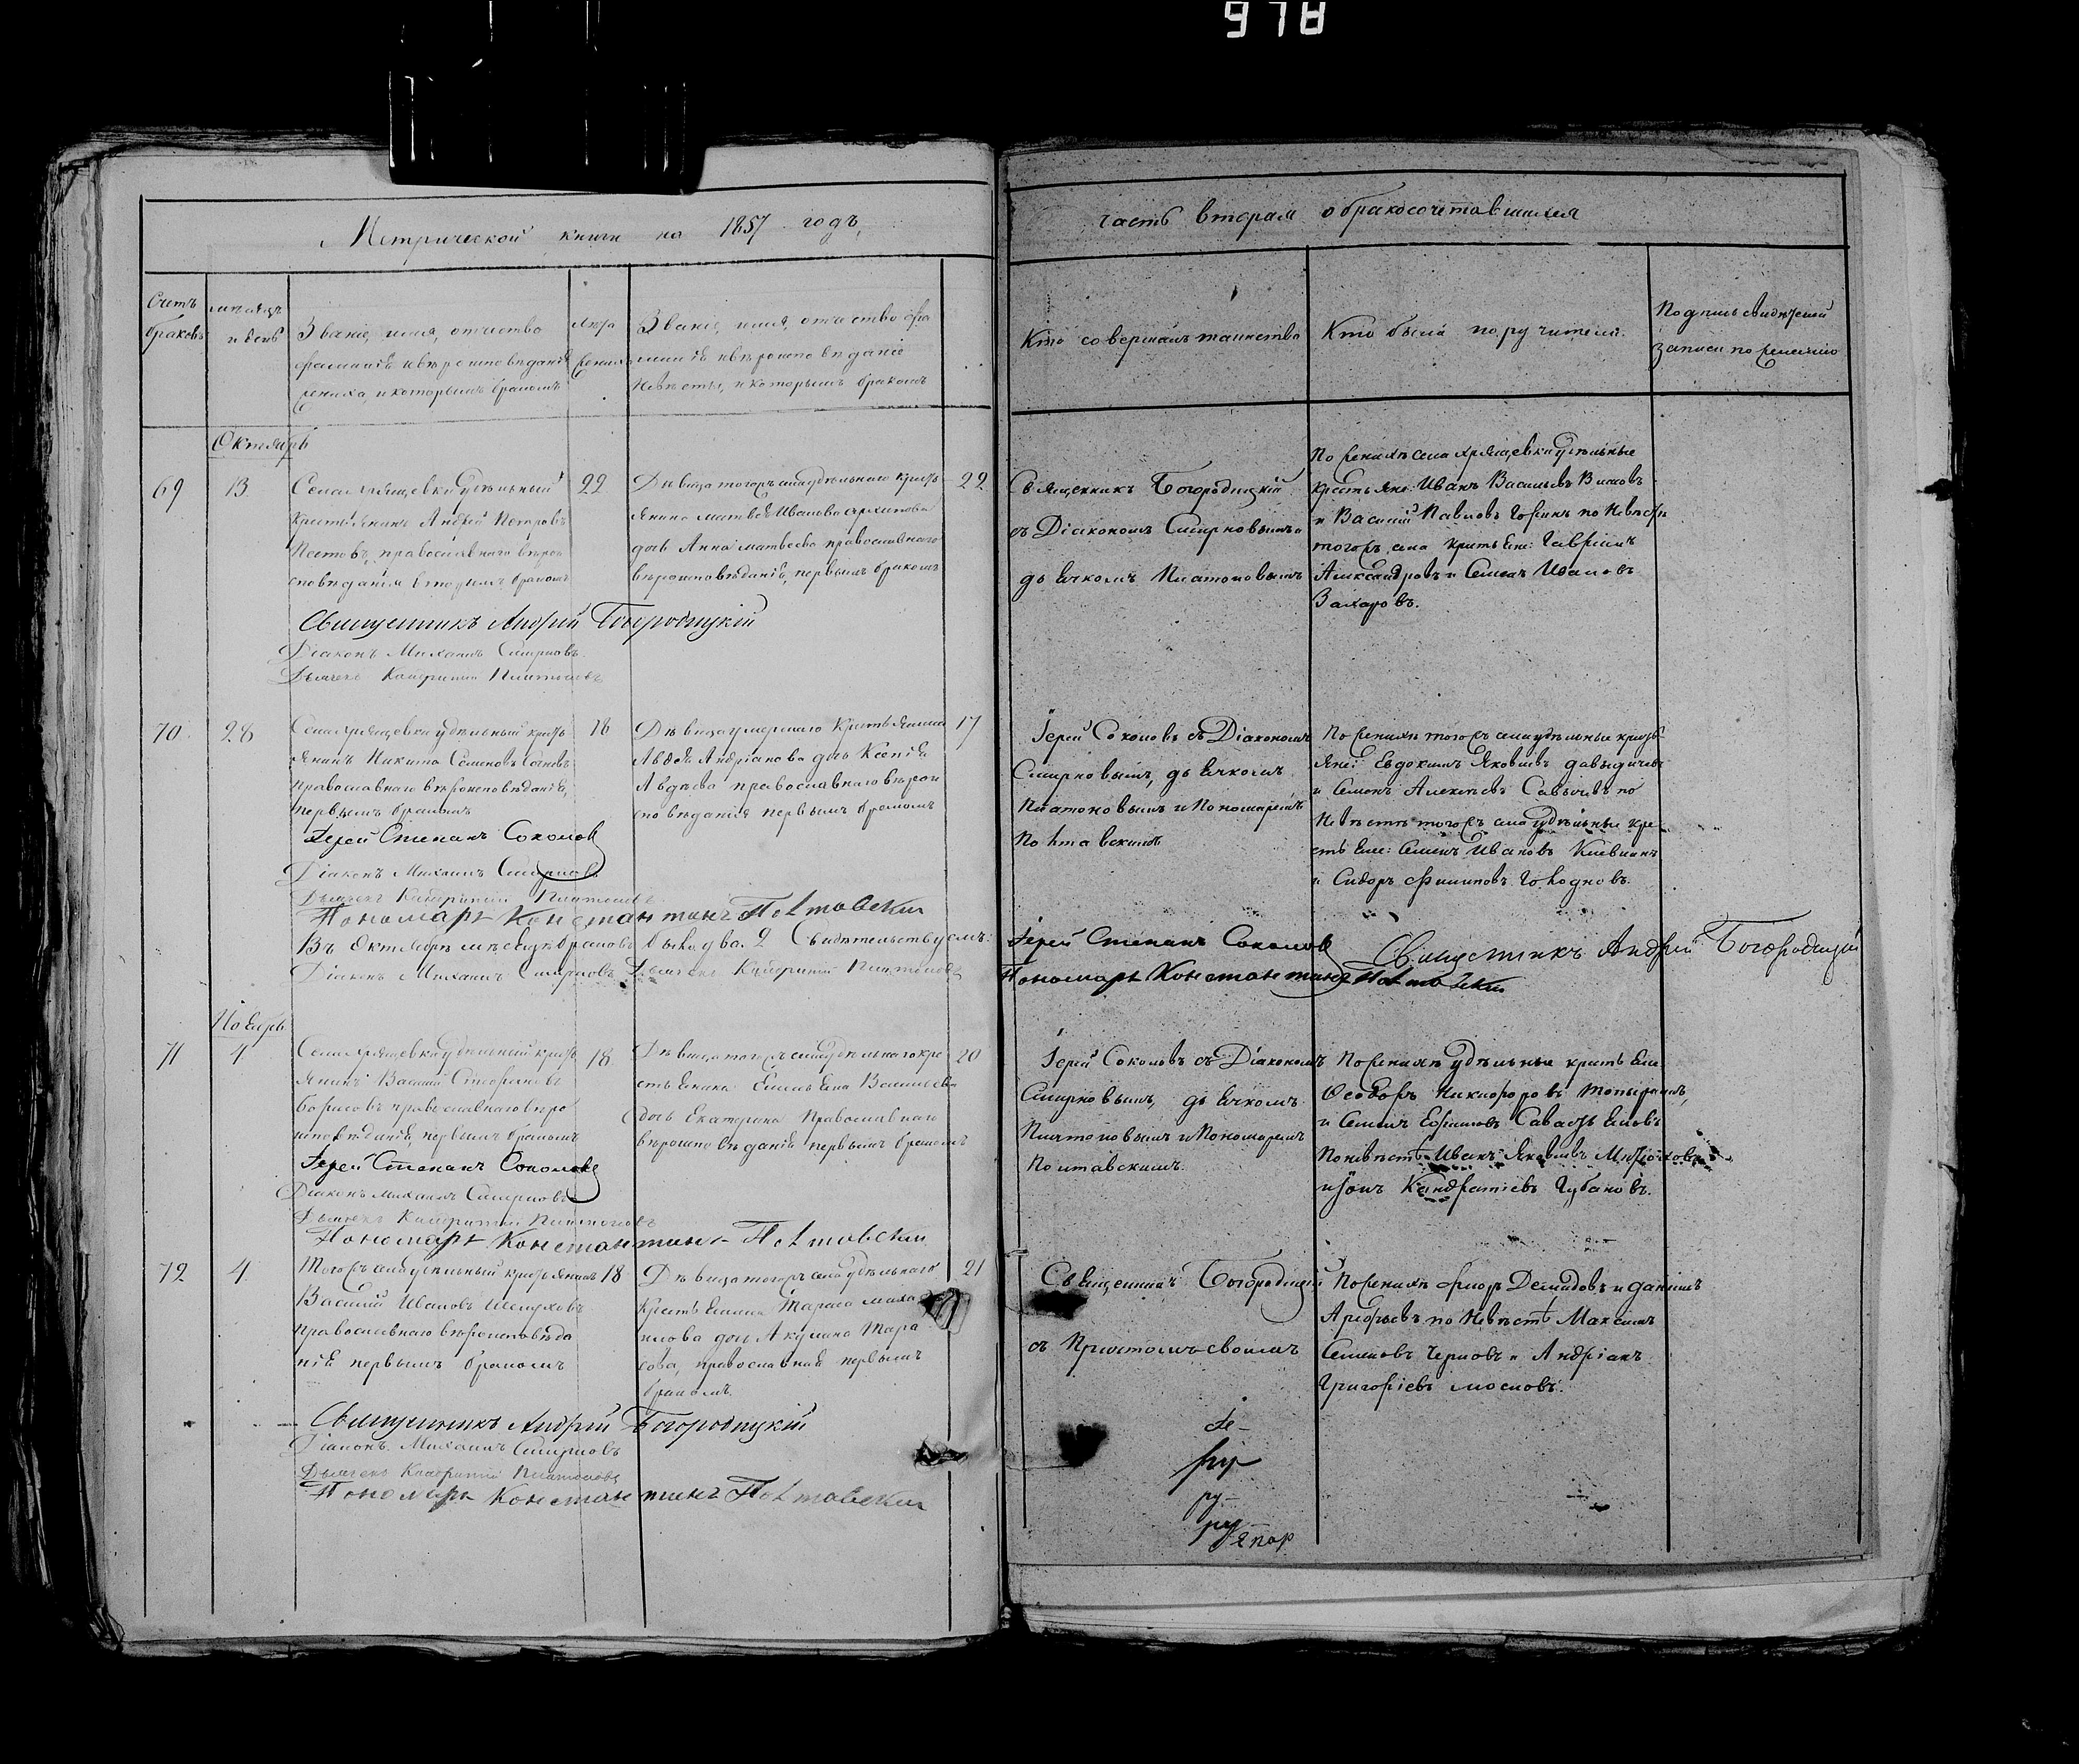 978
Метрической книги на 1857 годъ,
часть вторая о бракосочетавшихся
Счетъ
браковъ
мѣсяцъ
и день
Званіе, имя, отчество
фамилія и вѣроисповѣданіе
жениха, и которымъ бракомъ
Лѣта
жениха
Званіе, имя, отчество фа
милія и вѣроисповѣданіе
Невѣсты, и которымъ бракомъ
Кто совершалъ таинство
Кто были поручители.
Подпись свидѣтелей
записи по желанію
Октябрь
69
13
Села Хрящевки удѣльный
Крестьянинъ Андрей Петровъ
православнаго вѣрои
сповѣданія вторымъ бракомъ
22
Дѣвица тогожъ села удѣльнаго крестъ
янина Матвея Иванова Архипова
дочь Анна Матвеева православнаго
вѣроисповѣданія, первымъ бракомъ
22
Священникъ Богородицкій
съ Діакономъ Смирновымъ и
дьячкомъ Платоновымъ
По женихѣ села Хрящевки удѣльные
Крестьяне: Иванъ Васильевъ
и Василій Павловъ Горинъ по Невѣстѣ
тогожъ села крестьяне: Гавріилъ
Александровъ и Семенъ Ивановъ
Захаровъ.
Священникъ Андрей Богородицкій
Діаконъ Михаилъ Смирновъ
Дьячекъ Кондратій Платоновъ
70
28
Села Хрящевки удѣльный крестъ
янинъ Никита Семеновъ
православнаго вѣроисповѣданія,
первымъ бракомъ
18
Дѣвица умершаго Крестьянина
Авдея Андріанова дочь Ксенія
Авдѣева православнаго вѣрои
сповѣданія первымъ бракомъ
17
Іерей Соколовъ съ Діакономъ
Смирновымъ, дьячкомъ
Платоновымъ и Пономаремъ
Полтавскимъ
По женихѣ тогожъ села удѣльные кресть
яне: Евдокимъ Яковлевъ Давыдычевъ
и Семенъ Алексѣевъ по
Невѣстѣ тогожъ села удѣльные кре
стьяне: Семенъ Ивановъ
и Сидоръ Филиповъ Голодновъ.
Іерей Степанъ Соколовъ
Діаконъ Михаилъ Смирновъ
Дьячекъ Кондратій Платоновъ
Пономарь Константинъ Полтавскій
Въ Октябрѣ мѣсяцѣ браковъ было два. 2 Свидѣтельствуемъ:
Іерей Степанъ Соколовъ
Священникъ Андрей Богородицкій
Діаконъ Михаилъ Смирновъ Дьячекъ Кондратій Платоновъ
Пономарь Константинъ Полтавскій
Ноябрь
71
4
Села Хрящевки удѣльный кресть
янинъ Василій
Борисовъ православнаго вѣро
исповѣданія, первымъ бракомъ
18
Дѣвица тогожъ села удѣльнаго кре
стьянина Емельяна Васильева
дочь Екатерина Православнаго
вѣроисповѣданія первымъ бракомъ
20
Іерей Соколовъ съ Діакономъ
Смирновымъ, дьячкомъ
Платоновымъ и Пономаремъ
Полтавскимъ.
По женихѣ удѣльные крестьяне
Ѳеодоръ Никифоровъ
и Семенъ Ефимовъ Савастьяновъ
По невѣстѣ Иванъ Яковлевъ
и Кондратіевъ Губановъ.
Іерей Степанъ Соколовъ
Діаконъ Михаилъ Смирновъ
Дьячекъ Кондратій Платоновъ
Пономарь Константинъ Полтавскій
72
4
Тогожъ села удѣльный крестьянинъ
Василій Ивановъ Шелуховъ
православнаго вѣроисповѣда
нія первымъ бракомъ
18
Дѣвица тогожъ села удѣльнаго
Крестьянина Тараса Миха
илова дочь Акулина Тара
сова, православная первымъ
бракомъ.
21
Священникъ Богородицкій
съ Причтомъ своимъ
По женихѣ Флоръ Демидовъ и Даніилъ
Арефьевъ по Невѣстѣ Максимъ
Семеновъ Черновъ и Андріанъ
Григоріевъ Мосновъ.
Священникъ Андрей Богородицкій
Діаконъ Михаилъ Смирновъ
Дьячекъ Кондратій Платоновъ
Пономарь Константинъ Полтавскій